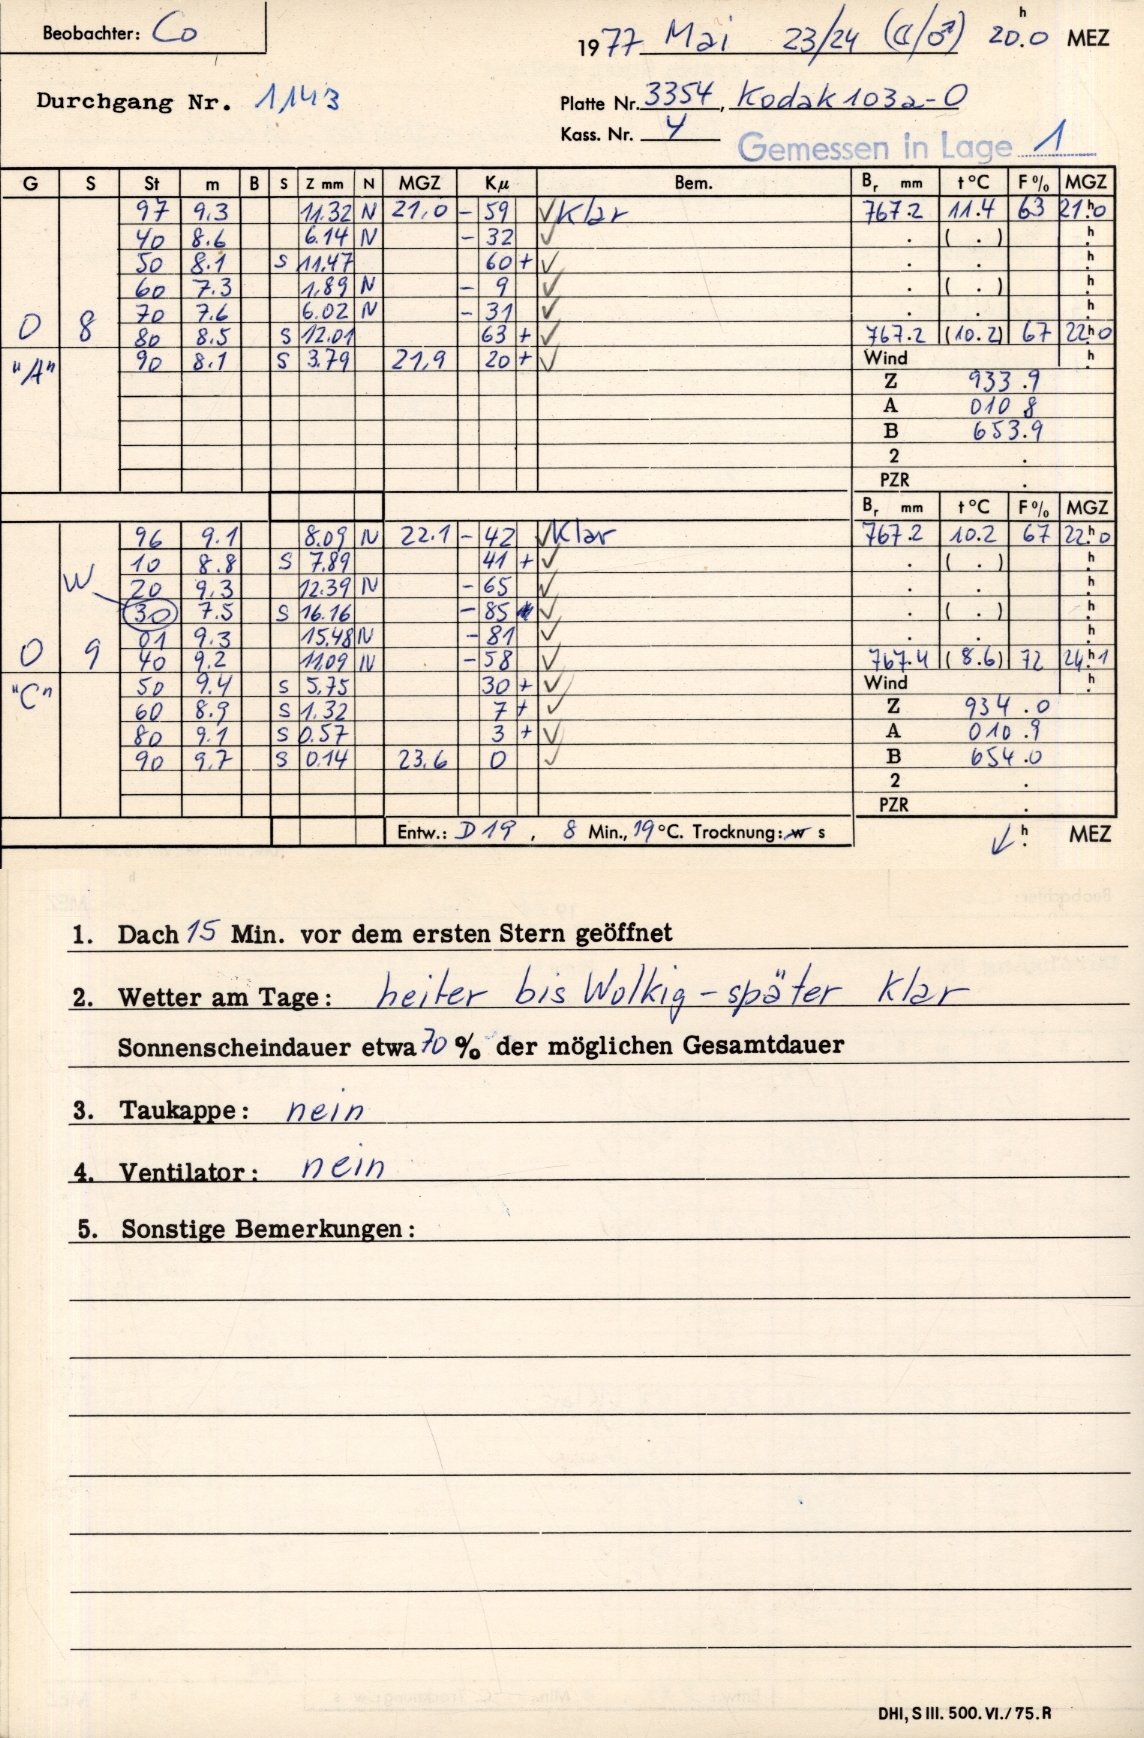 Beobachter: Co
1977 Mai 23/24 (☾/♂) 20.0 h MEZ
Durchgang Nr. 1143
Platte Nr. 3354, Kodak 103a-O
Kass. Nr. 4
Gemessen in Lage 1
G S St m B S Z mm N MGZ Kµ Bem. Br mm t °C F % MGZ
97 9.3 11.32 N 21,0 - 59 ✓ Klar 767.2 11.4 63 21h0
40 8.6 6.14 N - 32 ✓ . ( . ) h.
50 8.1 S 11.47 60 + ✓ . . h.
60 7.3 1.89 N - 9 ✓ . ( . ) h.
70 7.6 6.02 N - 31 ✓ . . h.
0 8 80 8.5 S 12.01 63 + ✓ 767.2 (10.2) 67 22h0
"A" 90 8.1 S 3.79 21,9 20 + ✓ Wind h.
Z 933.9
A 010 8
B 653.9
2 .
PZR .
Br mm t °C F % MGZ
96 9.1 8.09 N 22.1 - 42 ✓ Klar 767.2 10.2 67 22h0
10 8.8 S 7.89 41 + ✓ . ( . ) h.
W 20 9.3 12.39 N - 65 ✓ . . h.
30 7.5 S 16.16 - 85 ✓ . ( . ) h.
01 9.3 15.48 N - 81 ✓ . . h.
0 9 40 9.2 11.09 N - 58 ✓ 767.4 (8.6) 72 24h1
"C" 50 9.4 S 5.75 30 + ✓ Wind h.
60 8.9 S 1.32 7 + ✓ Z 934.0
80 9.1 S 0.57 3 + ✓ A 010.9
90 9.7 S 0.14 23.6 0 ✓ B 654.0
2 .
PZR .
Entw.: D19, 8 Min., 19 °C. Trocknung: w s h. MEZ
1. Dach 15 Min. vor dem ersten Stern geöffnet
2. Wetter am Tage: heiter bis Wolkig - später klar
Sonnenscheindauer etwa 70 % der möglichen Gesamtdauer
3. Taukappe: nein
4. Ventilator: nein
5. Sonstige Bemerkungen:
DHI, S III. 500. VI./75. R